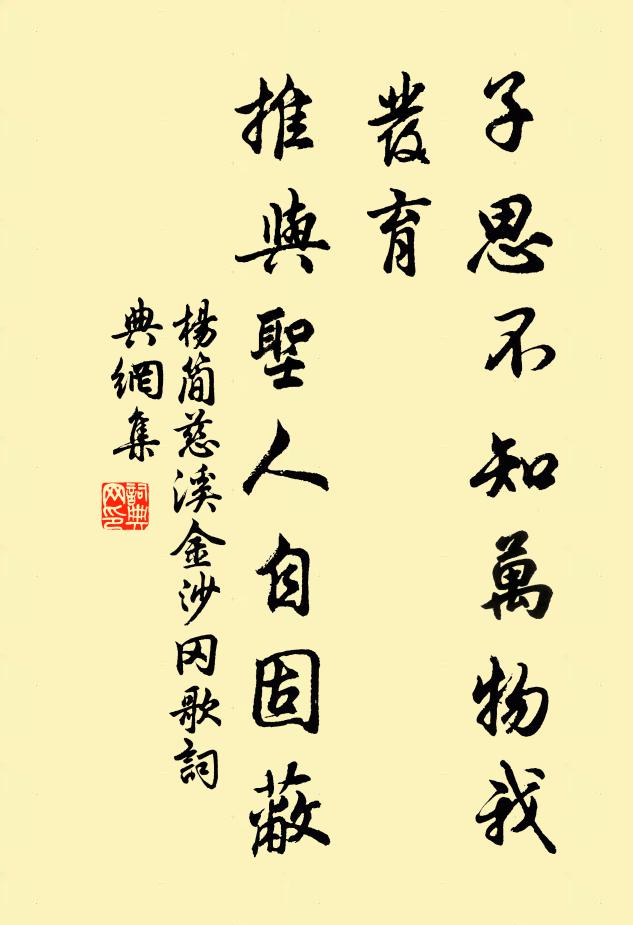 子思不知萬物我
發育
推與聖人自固蔽
楊簡慈溪金沙冈歌詞
典網集
詞典
网印